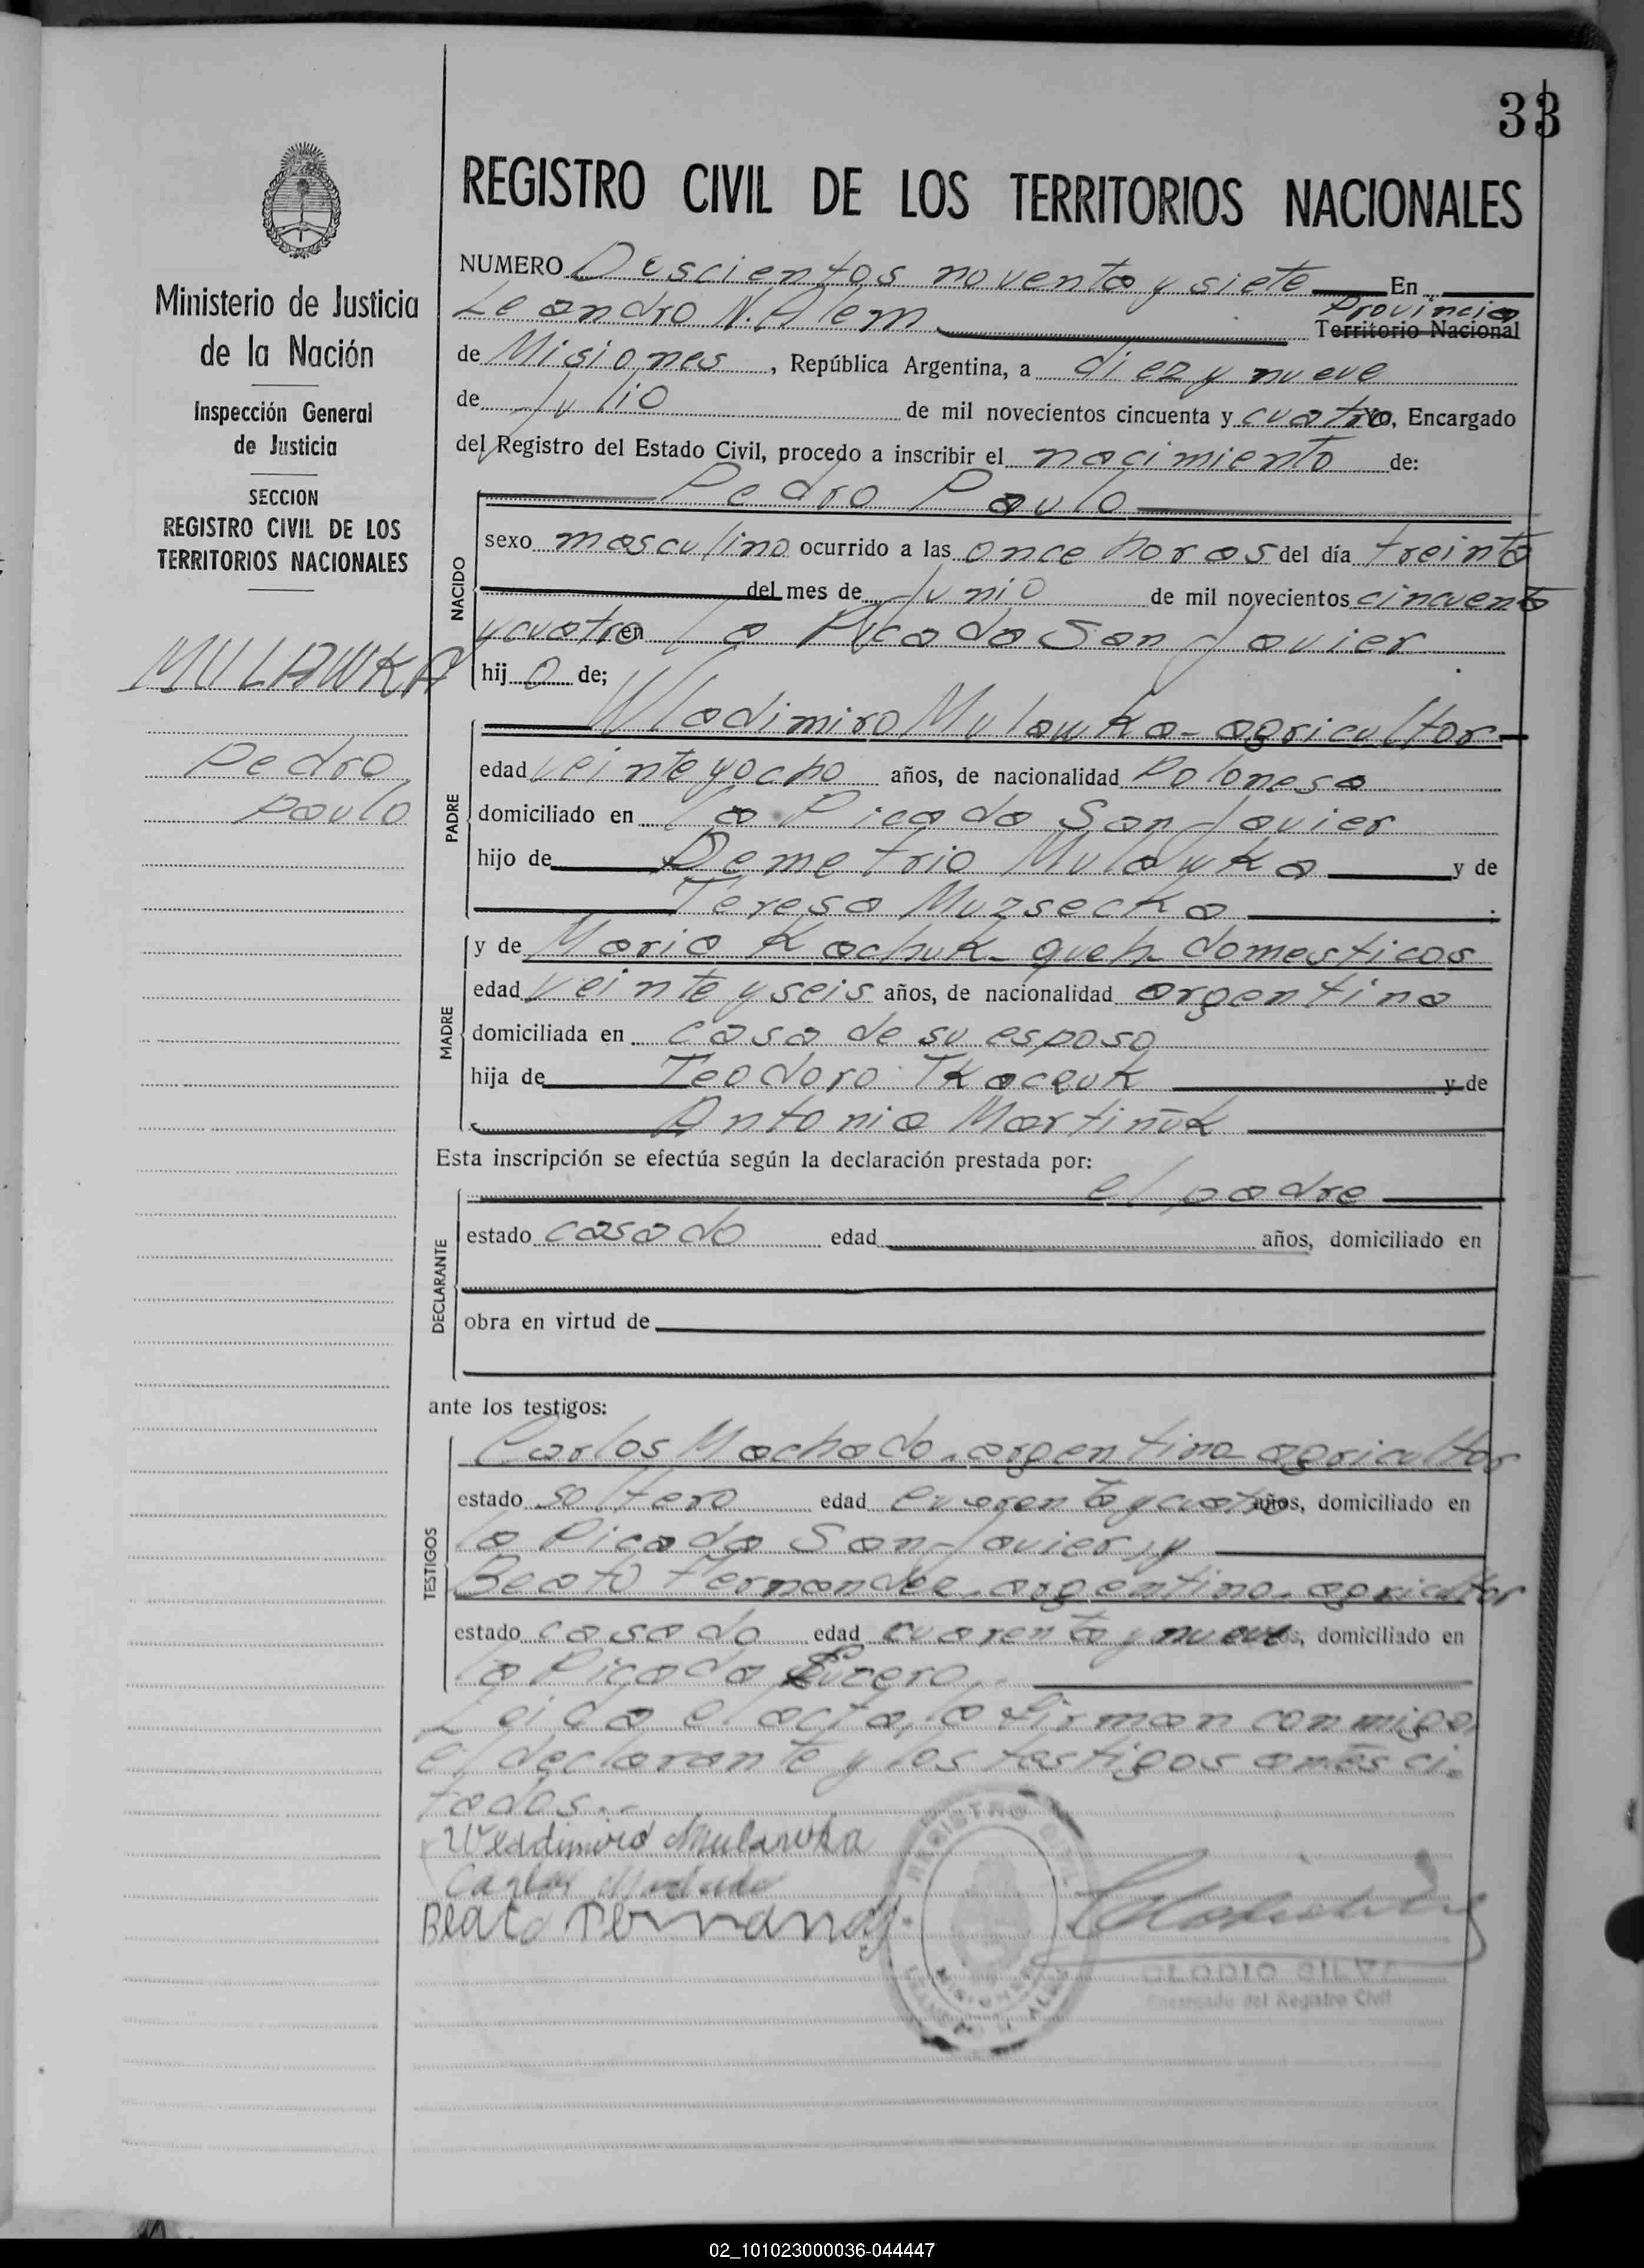 33
REGISTRO CIVIL DE LOS TERRITORIOS NACIONALES
Ministerio de Justicia
de la Nación
Inspección General
de Justicia
SECCION
REGISTRO CIVIL DE LOS
TERRITORIOS NACIONALES
MULAWKA
Pedro
Paulo
NUMERO Doscientos noventa y siete En
Provincia
Leandro N. Alem Territorio Nacional
de Misiones, República Argentina, a diez y nueve
de Julio de mil novecientos cincuenta y cuatro Yo, Encargado
del Registro del Estado Civil, procedo a inscribir el nacimiento de:
NACIDO
Pedro Paulo
sexo masculino ocurrido a las once horas del día treinta
del mes de Junio de mil novecientos cincuenta
y cuatro en la Picada San Javier
hijo de;
PADRE
Wladimiro Mulawka - agricultor
edad veinte y ocho años, de nacionalidad Polonesa
domiciliado en la Picada San Javier
hijo de Demetrio Mulawka y de
Teresa Muzsecka
MADRE
y de Maria Kachuk - queh. domesticos
edad veinte y seis años, de nacionalidad argentina
domiciliada en casa de su esposo
hija de Teodoro Tkaczuk y de
Antonia Martiñuk
Esta inscripción se efectúa según la declaración prestada por:
DECLARANTE
el padre
estado casado edad años, domiciliado en
obra en virtud de
ante los testigos:
TESTIGOS
Carlos Machado. argentino agricultor
estado soltero edad cuarenta y cuatro años, domiciliado en
la Picada San Javier, y
Beato Fernandez. argentino. agricultor
estado casado edad cuarenta y nueve años, domiciliado en
la Picada
Leida el acta, la firman conmigo,
el declarante y los testigos antes ci-
tados.-
Wladimiro Mulawka
Carlos Machado
Beato Fernandez
REGISTRO CIVIL
MISIONES
LEANDRO N. ALEM
CLODIO SILVA
Encargado del Registro Civil
02_101023000036-044447